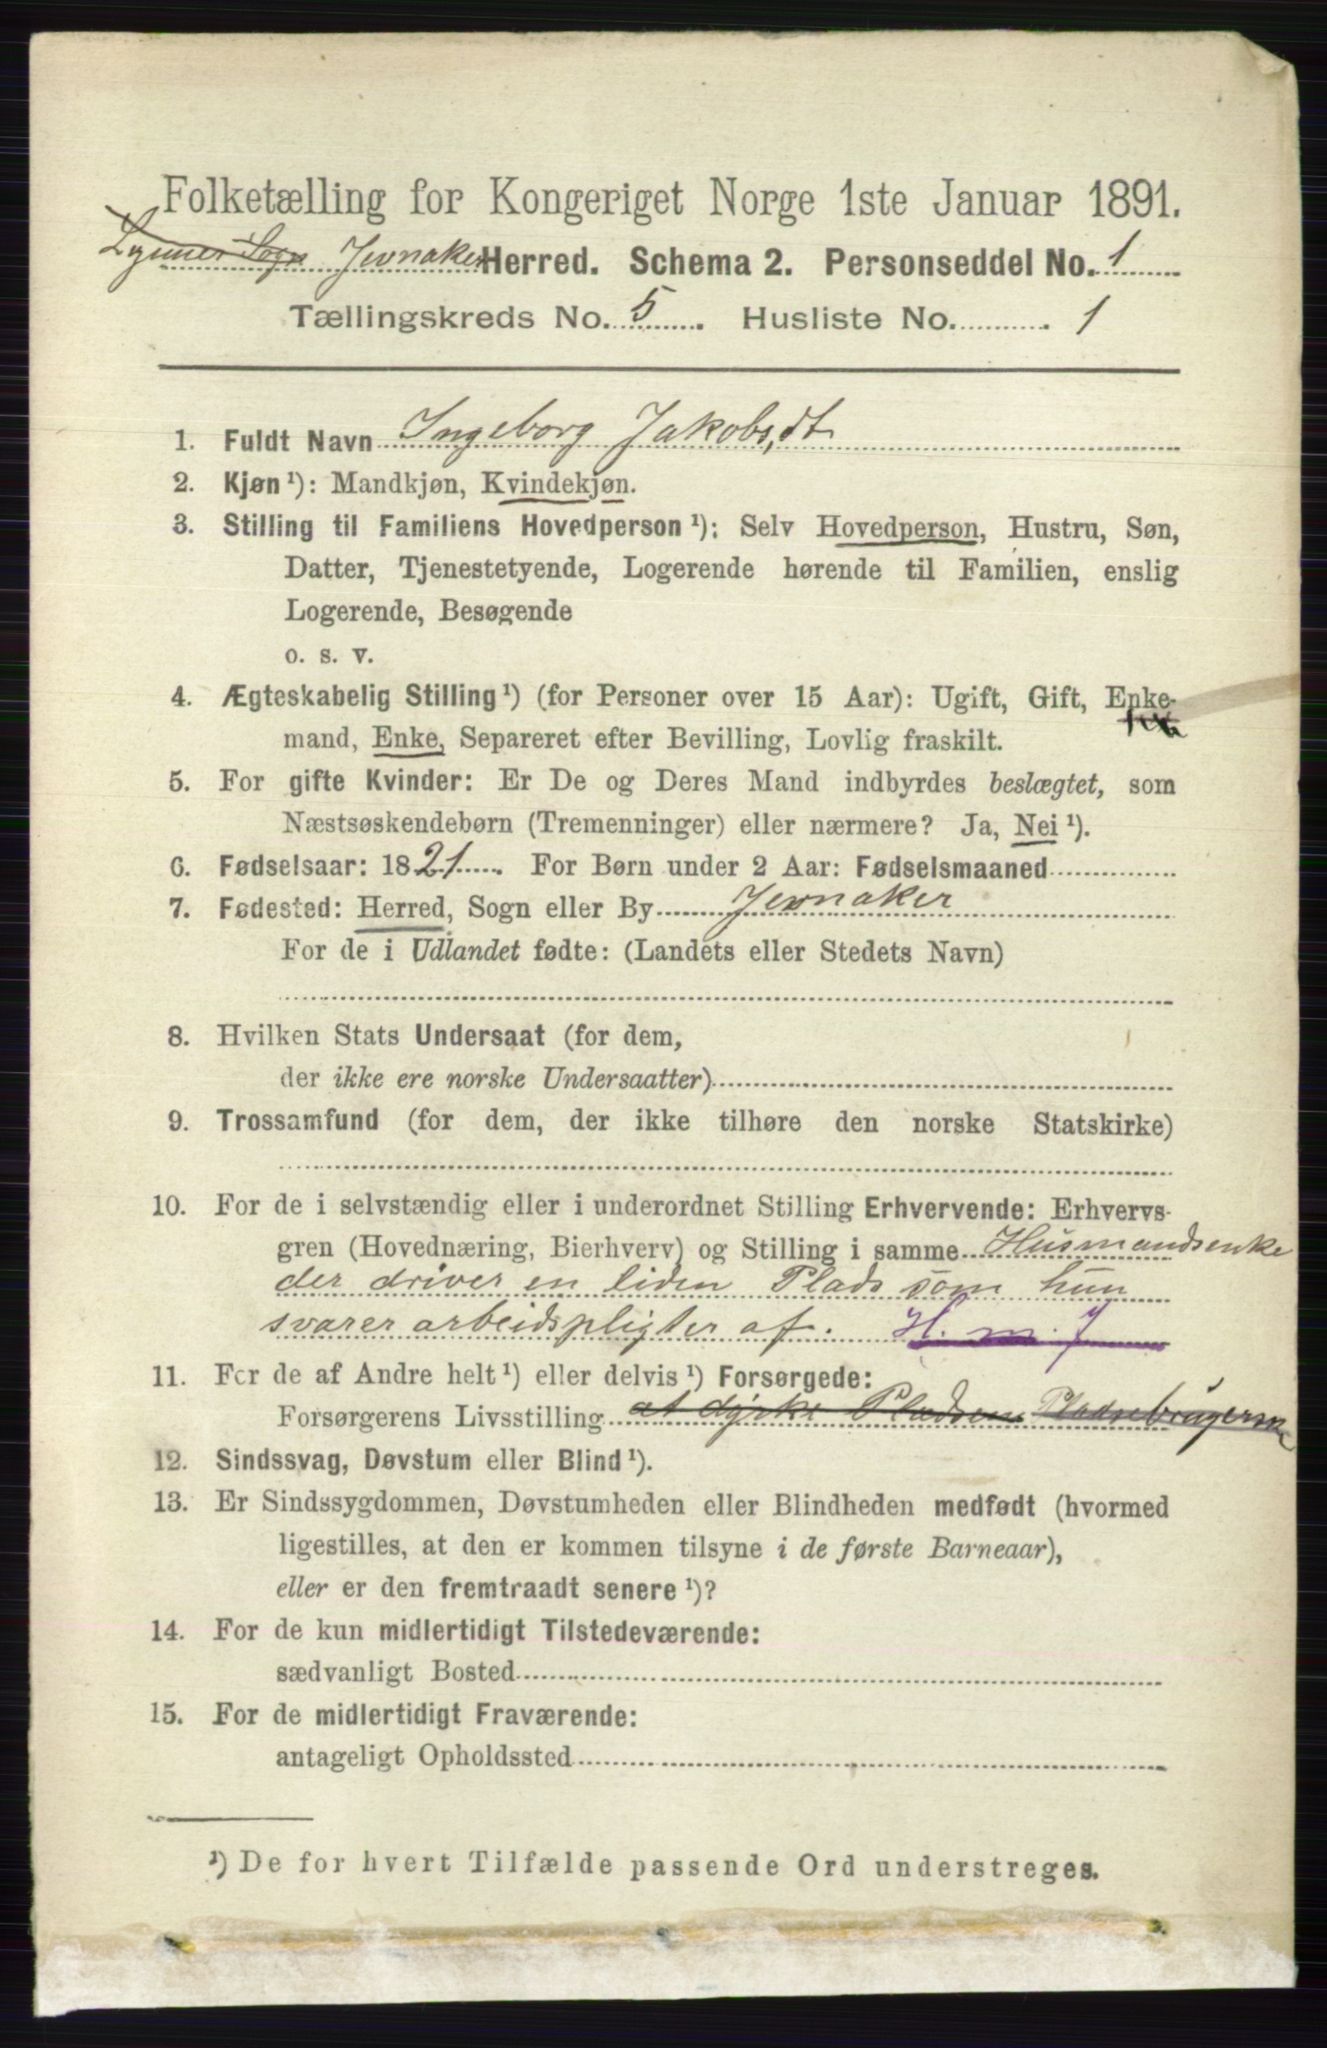 Folketælling for Kongeriget Norge 1ste Januar 1891.
Lynner Sogn Jevnaker Herred. Schema 2. Personseddel No. 1
Tællingskreds No. 5. Husliste No. 1
1. Fuldt Navn Ingeborg Jakobsdt
2. Kjøn ¹): Mandkjøn, Kvindekjøn.
3. Stilling til Familiens Hovedperson ¹): Selv Hovedperson, Hustru, Søn,
Datter, Tjenestetyende, Logerende hørende til Familien, enslig
Logerende, Besøgende
o. s. v.
4. Ægteskabelig Stilling ¹) (for Personer over 15 Aar): Ugift, Gift, Enke-
mand, Enke, Separeret efter Bevilling, Lovlig fraskilt.
5. For gifte Kvinder: Er De og Deres Mand indbyrdes beslægtet, som
Næstsøskendebørn (Tremenninger) eller nærmere? Ja, Nei ¹).
6. Fødselsaar: 1821. For Børn under 2 Aar: Fødselsmaaned
7. Fødested: Herred, Sogn eller By Jevnaker
For de i Udlandet fødte: (Landets eller Stedets Navn)
8. Hvilken Stats Undersaat (for dem,
der ikke ere norske Undersaatter)
9. Trossamfund (for dem, der ikke tilhøre den norske Statskirke)
10. For de i selvstændig eller i underordnet Stilling Erhvervende: Erhvervs-
gren (Hovednæring, Bierhverv) og Stilling i samme Husmandsenke
der driver en liden Plads som hun
svarer arbeidspligter af. H. m. J
11. For de af Andre helt ¹) eller delvis ¹) Forsørgede:
Forsørgerens Livsstilling at dyrke Pladsen Pladsebrugerske
12. Sindssvag, Døvstum eller Blind ¹).
13. Er Sindssygdommen, Døvstumheden eller Blindheden medfødt (hvormed
ligestilles, at den er kommen tilsyne i de første Barneaar),
eller er den fremtraadt senere ¹)?
14. For de kun midlertidigt Tilstedeværende:
sædvanligt Bosted
15. For de midlertidigt Fraværende:
antageligt Opholdssted
¹) De for hvert Tilfælde passende Ord understreges.